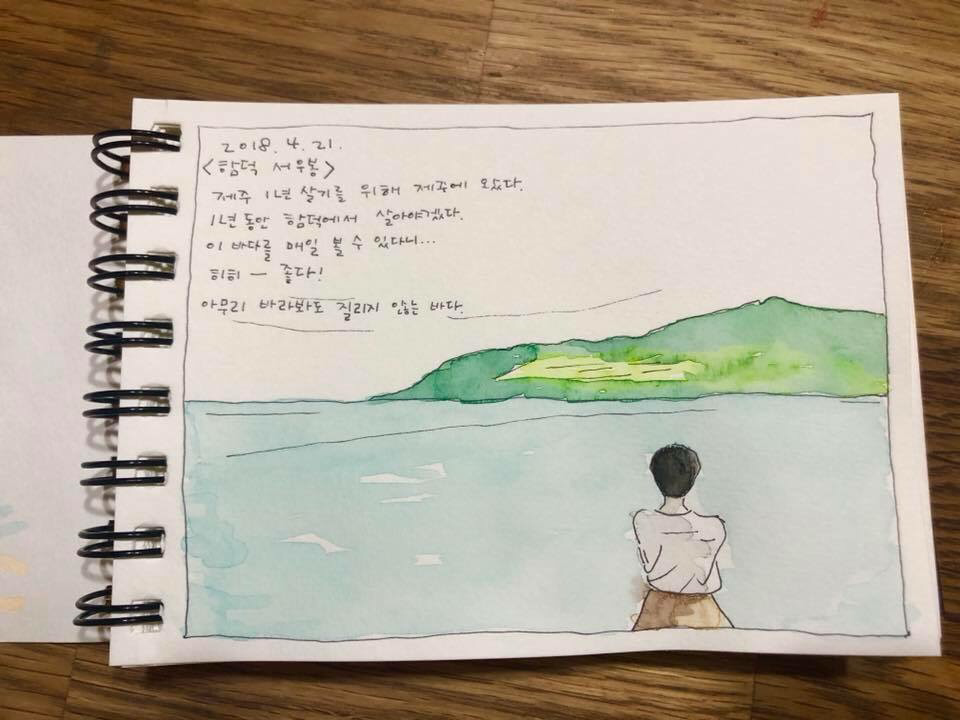 2018. 4. 21.
<함덕 서우봉>
제주 1년 살기를 위해 제주에 왔다.
1년 동안 함덕에서 살아야겠다.
이 바다를 매일 볼 수 있다니...
히히 - 좋다!
아무리 바라봐도 질리지 않는 바다.